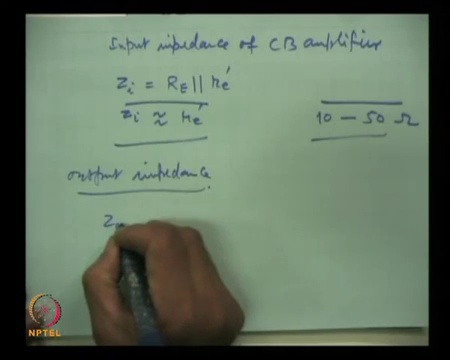 Input impedance of CB amplifier
Zi = RE || re'
Zi ≈ re'
10 — 50 Ω
output impedance
Zo
NPTEL